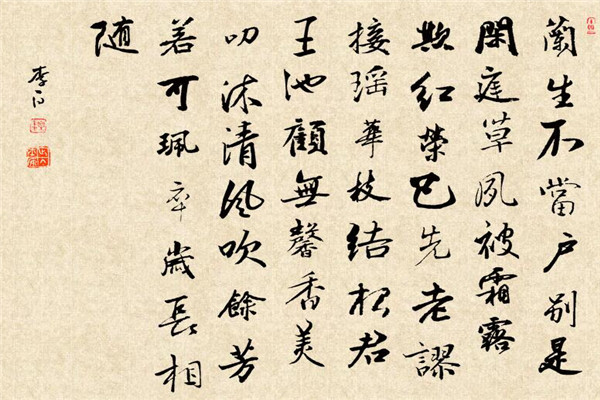 蘭生不當户别是
閑庭草夙被霜露
欺紅榮已先老謬
接瑶華枝結根君
王池顧無馨香美
叨沐清風吹餘芳
若可珮卒歲長相
随
李白